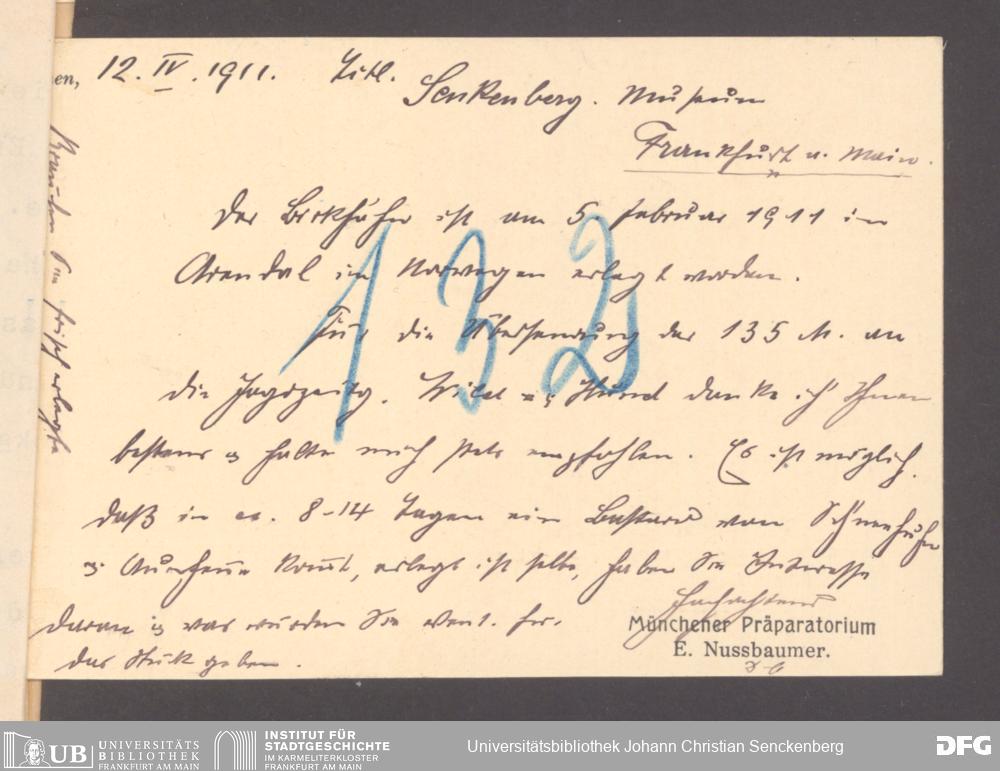 en, 12. IV. 1911. Titl.
Senkenberg. Museum
Frankfurt a. Main.
Das Birkhuhn ist am 5 Februar 1911 in
Arendal in Norwegen erlegt worden.
Für die Übersendung der 135 M. an
die Jagdzeitg. Wild u. Hund danke ich Ihnen
bestens u halte mich stets empfohlen. Es ist möglich,
daß in ca. 8-14 Tagen ein Bastard von Schneehuhn
u. Auerhenne kommt, erlegt ist selbe, haben Sie Interesse
daran u was würden Sie event. für
das Stück geben.
Hochachtend
Münchener Präparatorium
E. Nussbaumer.
Brauchen Sie frisch erlegte
132
UB UNIVERSITÄTS
BIBLIOTHEK
FRANKFURT AM MAIN
INSTITUT FÜR
STADTGESCHICHTE
IM KARMELITERKLOSTER
FRANKFURT AM MAIN
Universitätsbibliothek Johann Christian Senckenberg
DFG